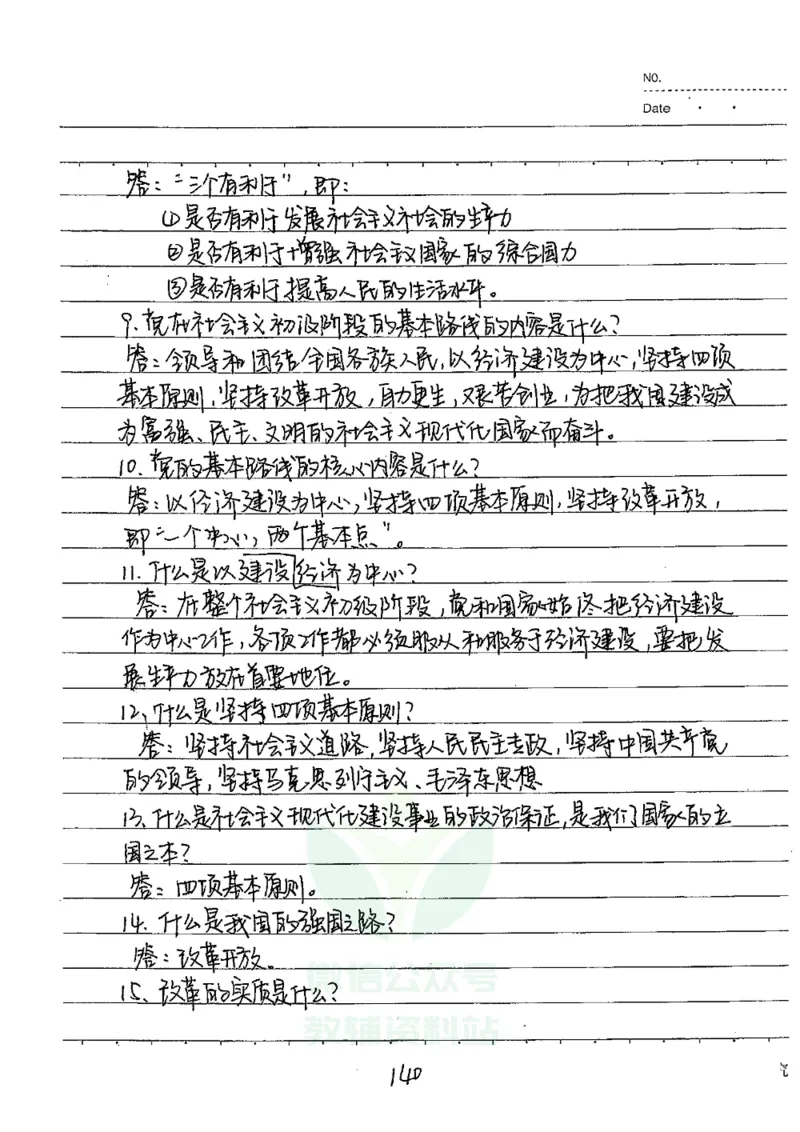 NO.
Date
答："三个有利于"，即：
①是否有利于发展社会主义社会的生产力
②是否有利于增强社会主义国家的综合国力
③是否有利于提高人民的生活水平。
9、党在社会主义初级阶段的基本路线的内容是什么？
答：领导和团结全国各族人民，以经济建设为中心，坚持四项
基本原则，坚持改革开放，自力更生，艰苦创业，为把我国建设成
为富强、民主、文明的社会主义现代化国家而奋斗。
10、党的基本路线的核心内容是什么？
答：以经济建设为中心，坚持四项基本原则，坚持改革开放，
即"一个中心，两个基本点"。
11、什么是以建设经济为中心？
答：在整个社会主义初级阶段，党和国家始终把经济建设
作为中心工作，各项工作都必须服从和服务于经济建设，要把发
展生产力放在首要地位。
12、什么是坚持四项基本原则？
答：坚持社会主义道路，坚持人民民主专政，坚持中国共产党
的领导，坚持马克思列宁主义、毛泽东思想
13、什么是社会主义现代化建设事业的政治保证，是我们国家的立
国之本？
答：四项基本原则。
14、什么是我国的强国之路？
答：改革开放。
15、改革的实质是什么？
微信公众号
教辅资料站
140